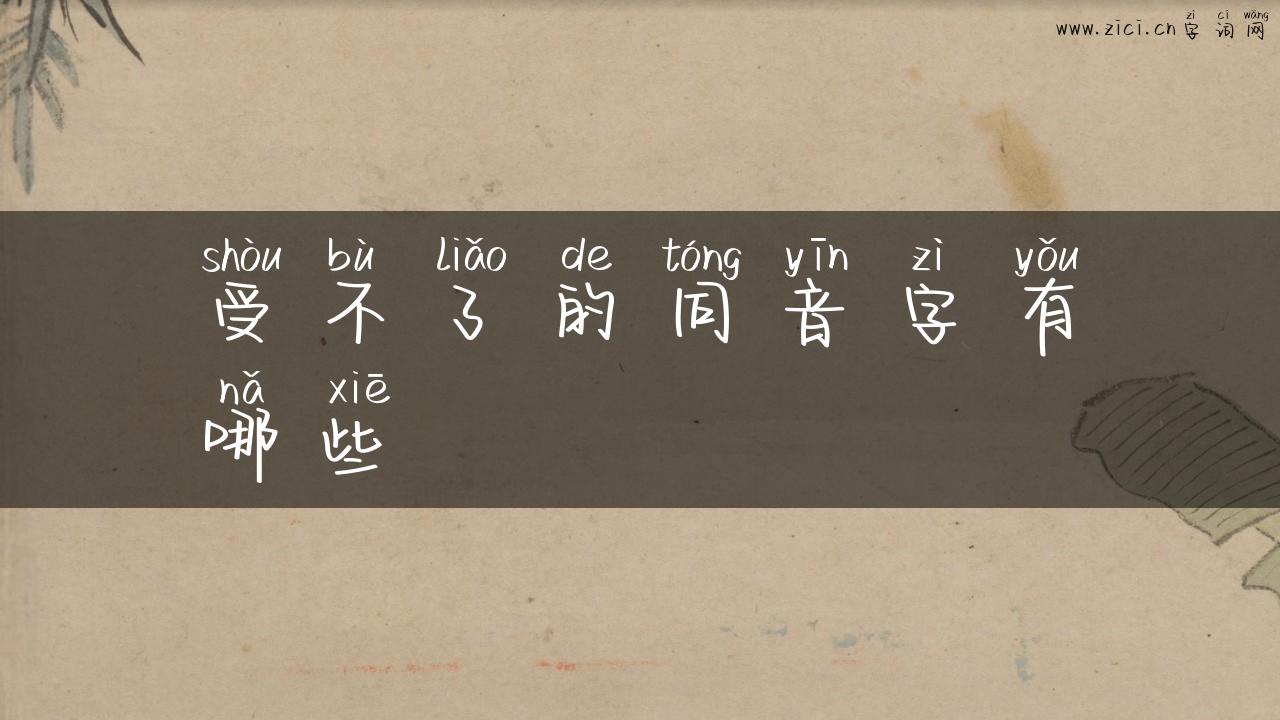 zì cí wǎng
www.zici.cn 字词网
shòu bù liǎo de tóng yīn zì yǒu
受不了的同音字有
nǎ xiē
哪些